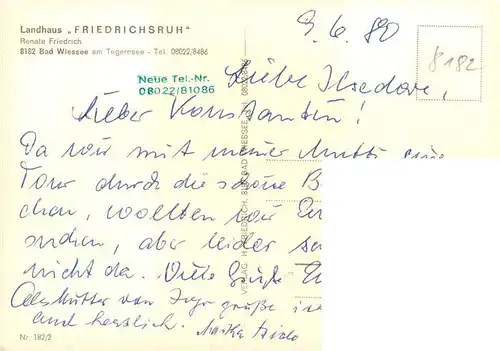 Landhaus „FRIEDRICHSRUH"
Renate Friedrich
8182 Bad Wiessee am Tegernsee - Tel. 08022/8486
Neue Tel.-Nr.
08022/81086
9.6.80
8182
Liebe Ilsedore,
Lieber Konstantin!
Da wir mit meiner Mutti eine
Tour durch die schöne B
chen, wollten wir
suchen, aber leider
nicht da. Viele Grüße
Als Mutter von grüße
und herzlich.
VERLAG: H. FRIEDRICH, 8182 BAD WIESSEE, TEL. 08022/8486
Nr. 182/2